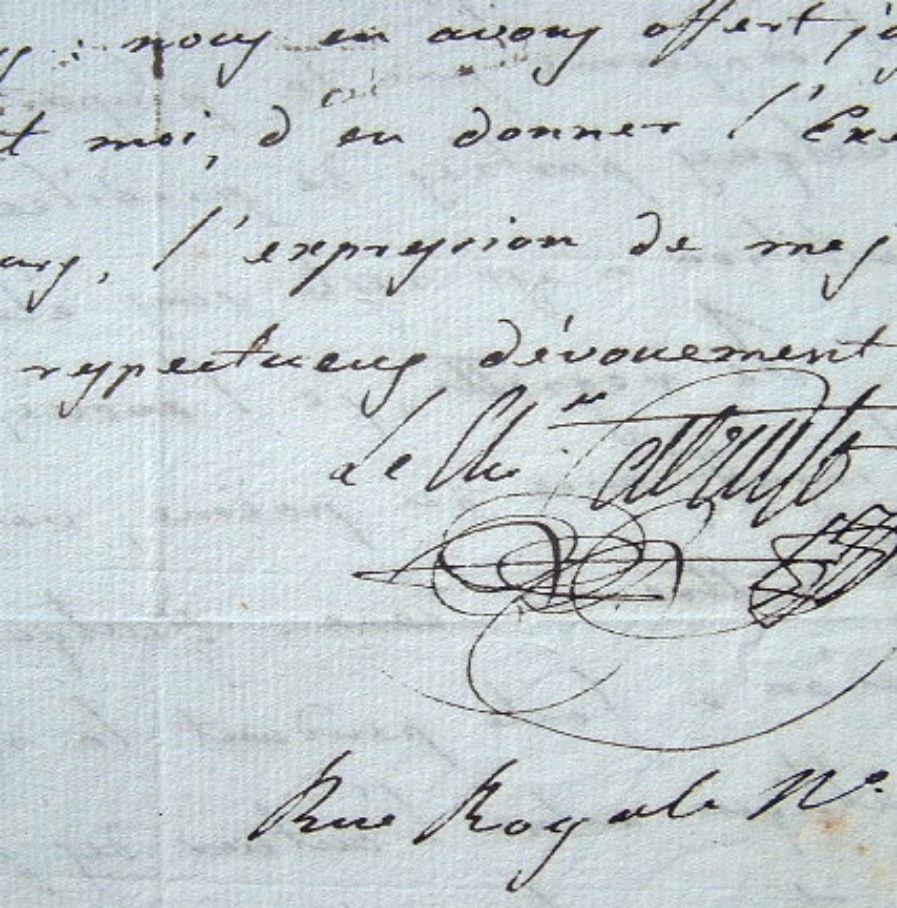 : nous en avons offert
t moi, d'en donner l'Exe
l'expression de mes
respectueux dévouement
Le Ch.er
Rue Royale N°.